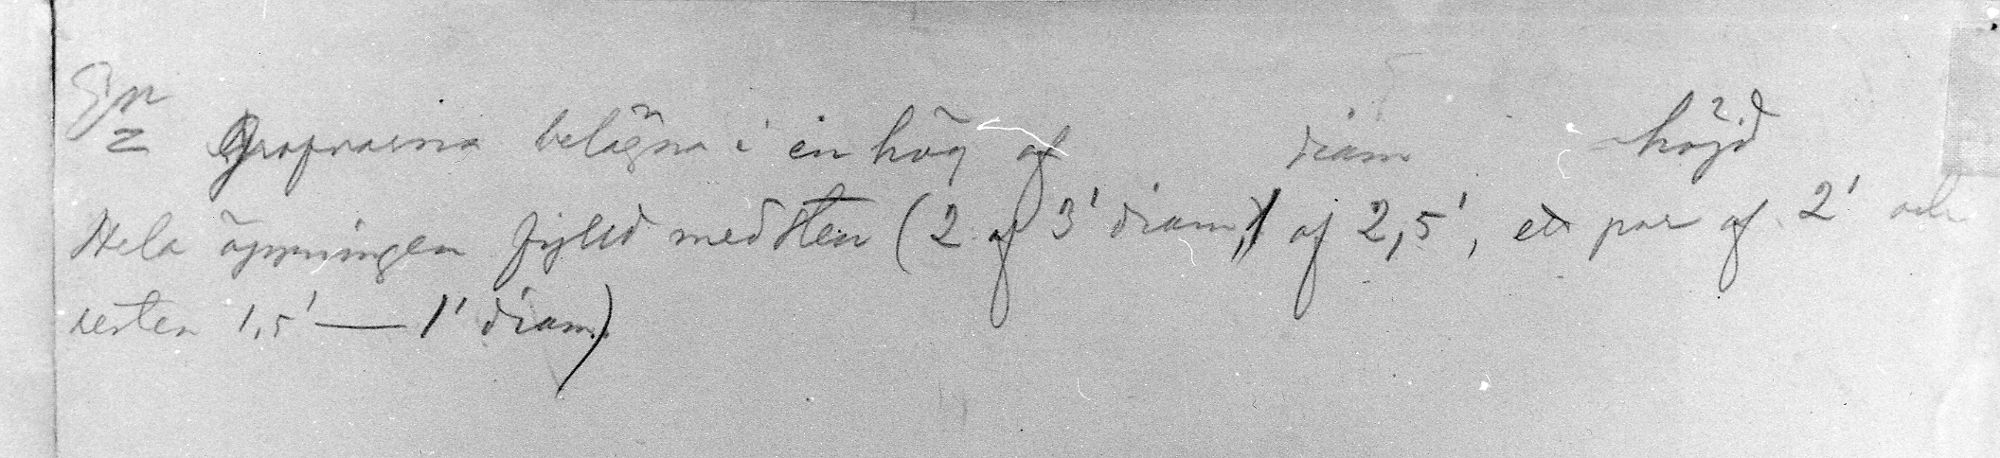 Grafvarna belägna i en hög af diam höjd
Hela öppningen fylld med sten (2 af 3' diam, 1 af 2,5', ett par af 2' och
resten 1,5' — 1' diam.)